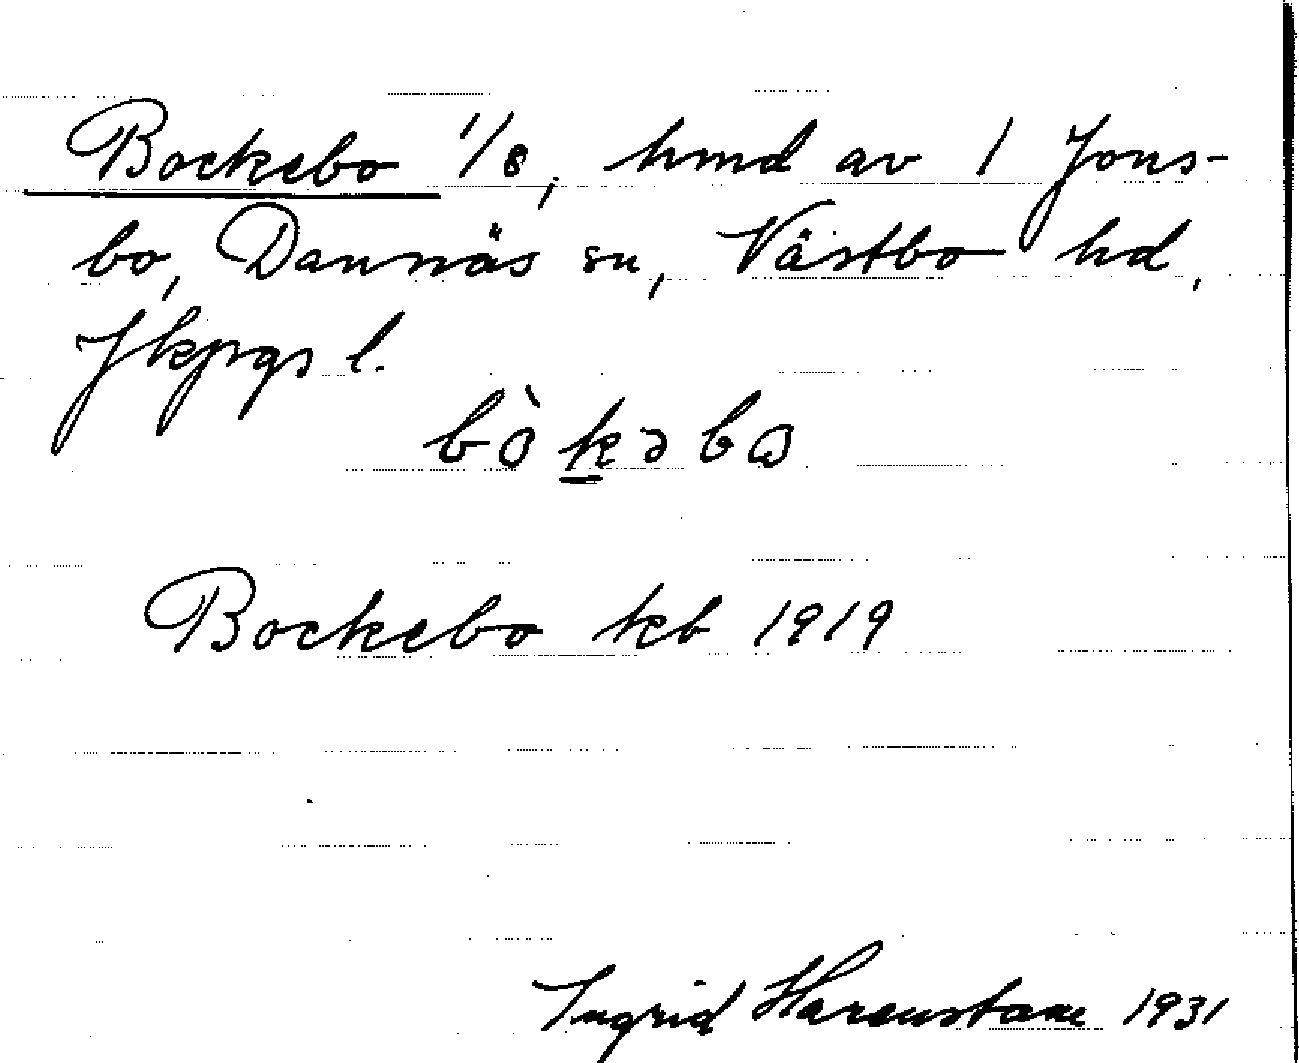 Bockebo 1/8, hmd av 1 Jons-
bo, Dannäs sn, Västbo hd,
Jkpgs l.
bòkəbo
Bockebo kb 1919
Ingrid Harenstam 1931